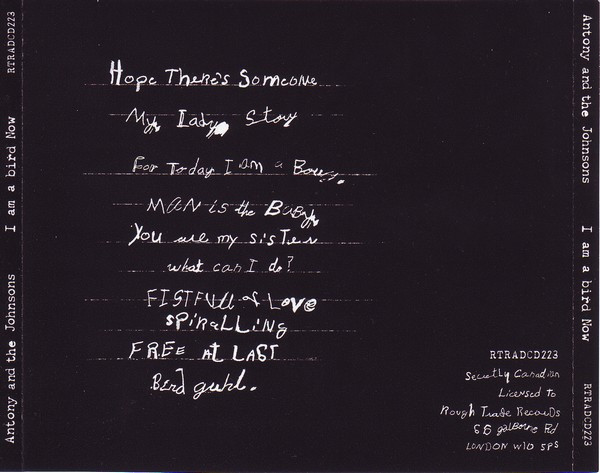 Antony and the Johnsons I am a bird Now RTRADCD223
Hope There's Someone
My Lady Story
For Today I am a Boy
MAN is the BaBy
You are my sisTer
what can I do?
FISTFUll of LOVE
SPiRaLLiNg
FREE AT LAST
Bird guhl.
RTRADCD223
Secretly Canadian
Licensed to
Rough Trade Records
66 golborne Rd
LONDON W10 5PS
Antony and the Johnsons I am a bird Now RTRADCD223